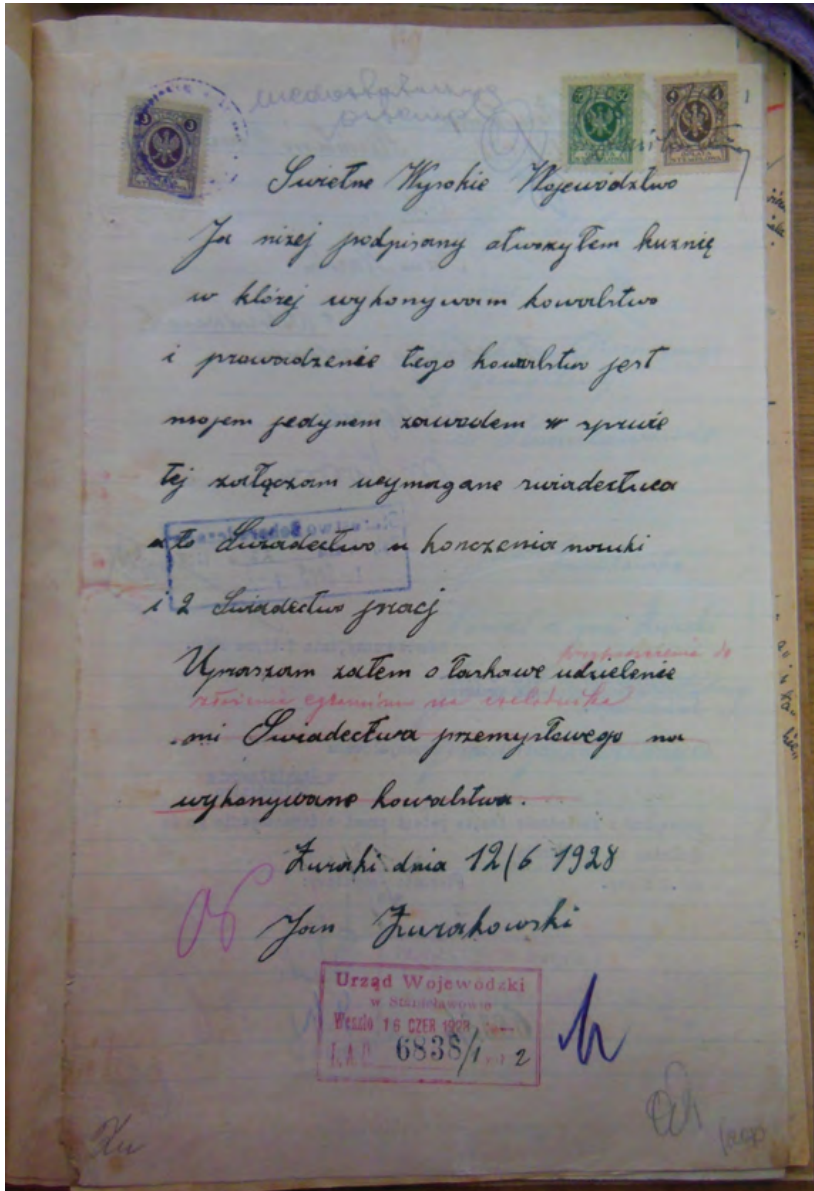 Swietne Wysokie Województwo
Ja niżej podpisany otwożyłem kuznię
w której wykonywam kowalstwo
i prowadzenie tego kowalstwa jest
mojem jedynem zawodem w sprawie
tej załączam wymagane swiadectwa
a to Swiadectwo u konczenia nauki
i 2 Swiadectwa pracj
przypuszczenia do
Upraszam zatem o łaskawe udzielenie
złożenia egzaminu na czeladnika
mi Swiadectwa przemysłowego na
wykonywane kowalstwa.
Żuraki dnia 12/6 1928
Jan Żurakowski
Urząd Wojewódzki
w Stanisławowie
Weszło 16 CZER 1928
6838/1 2